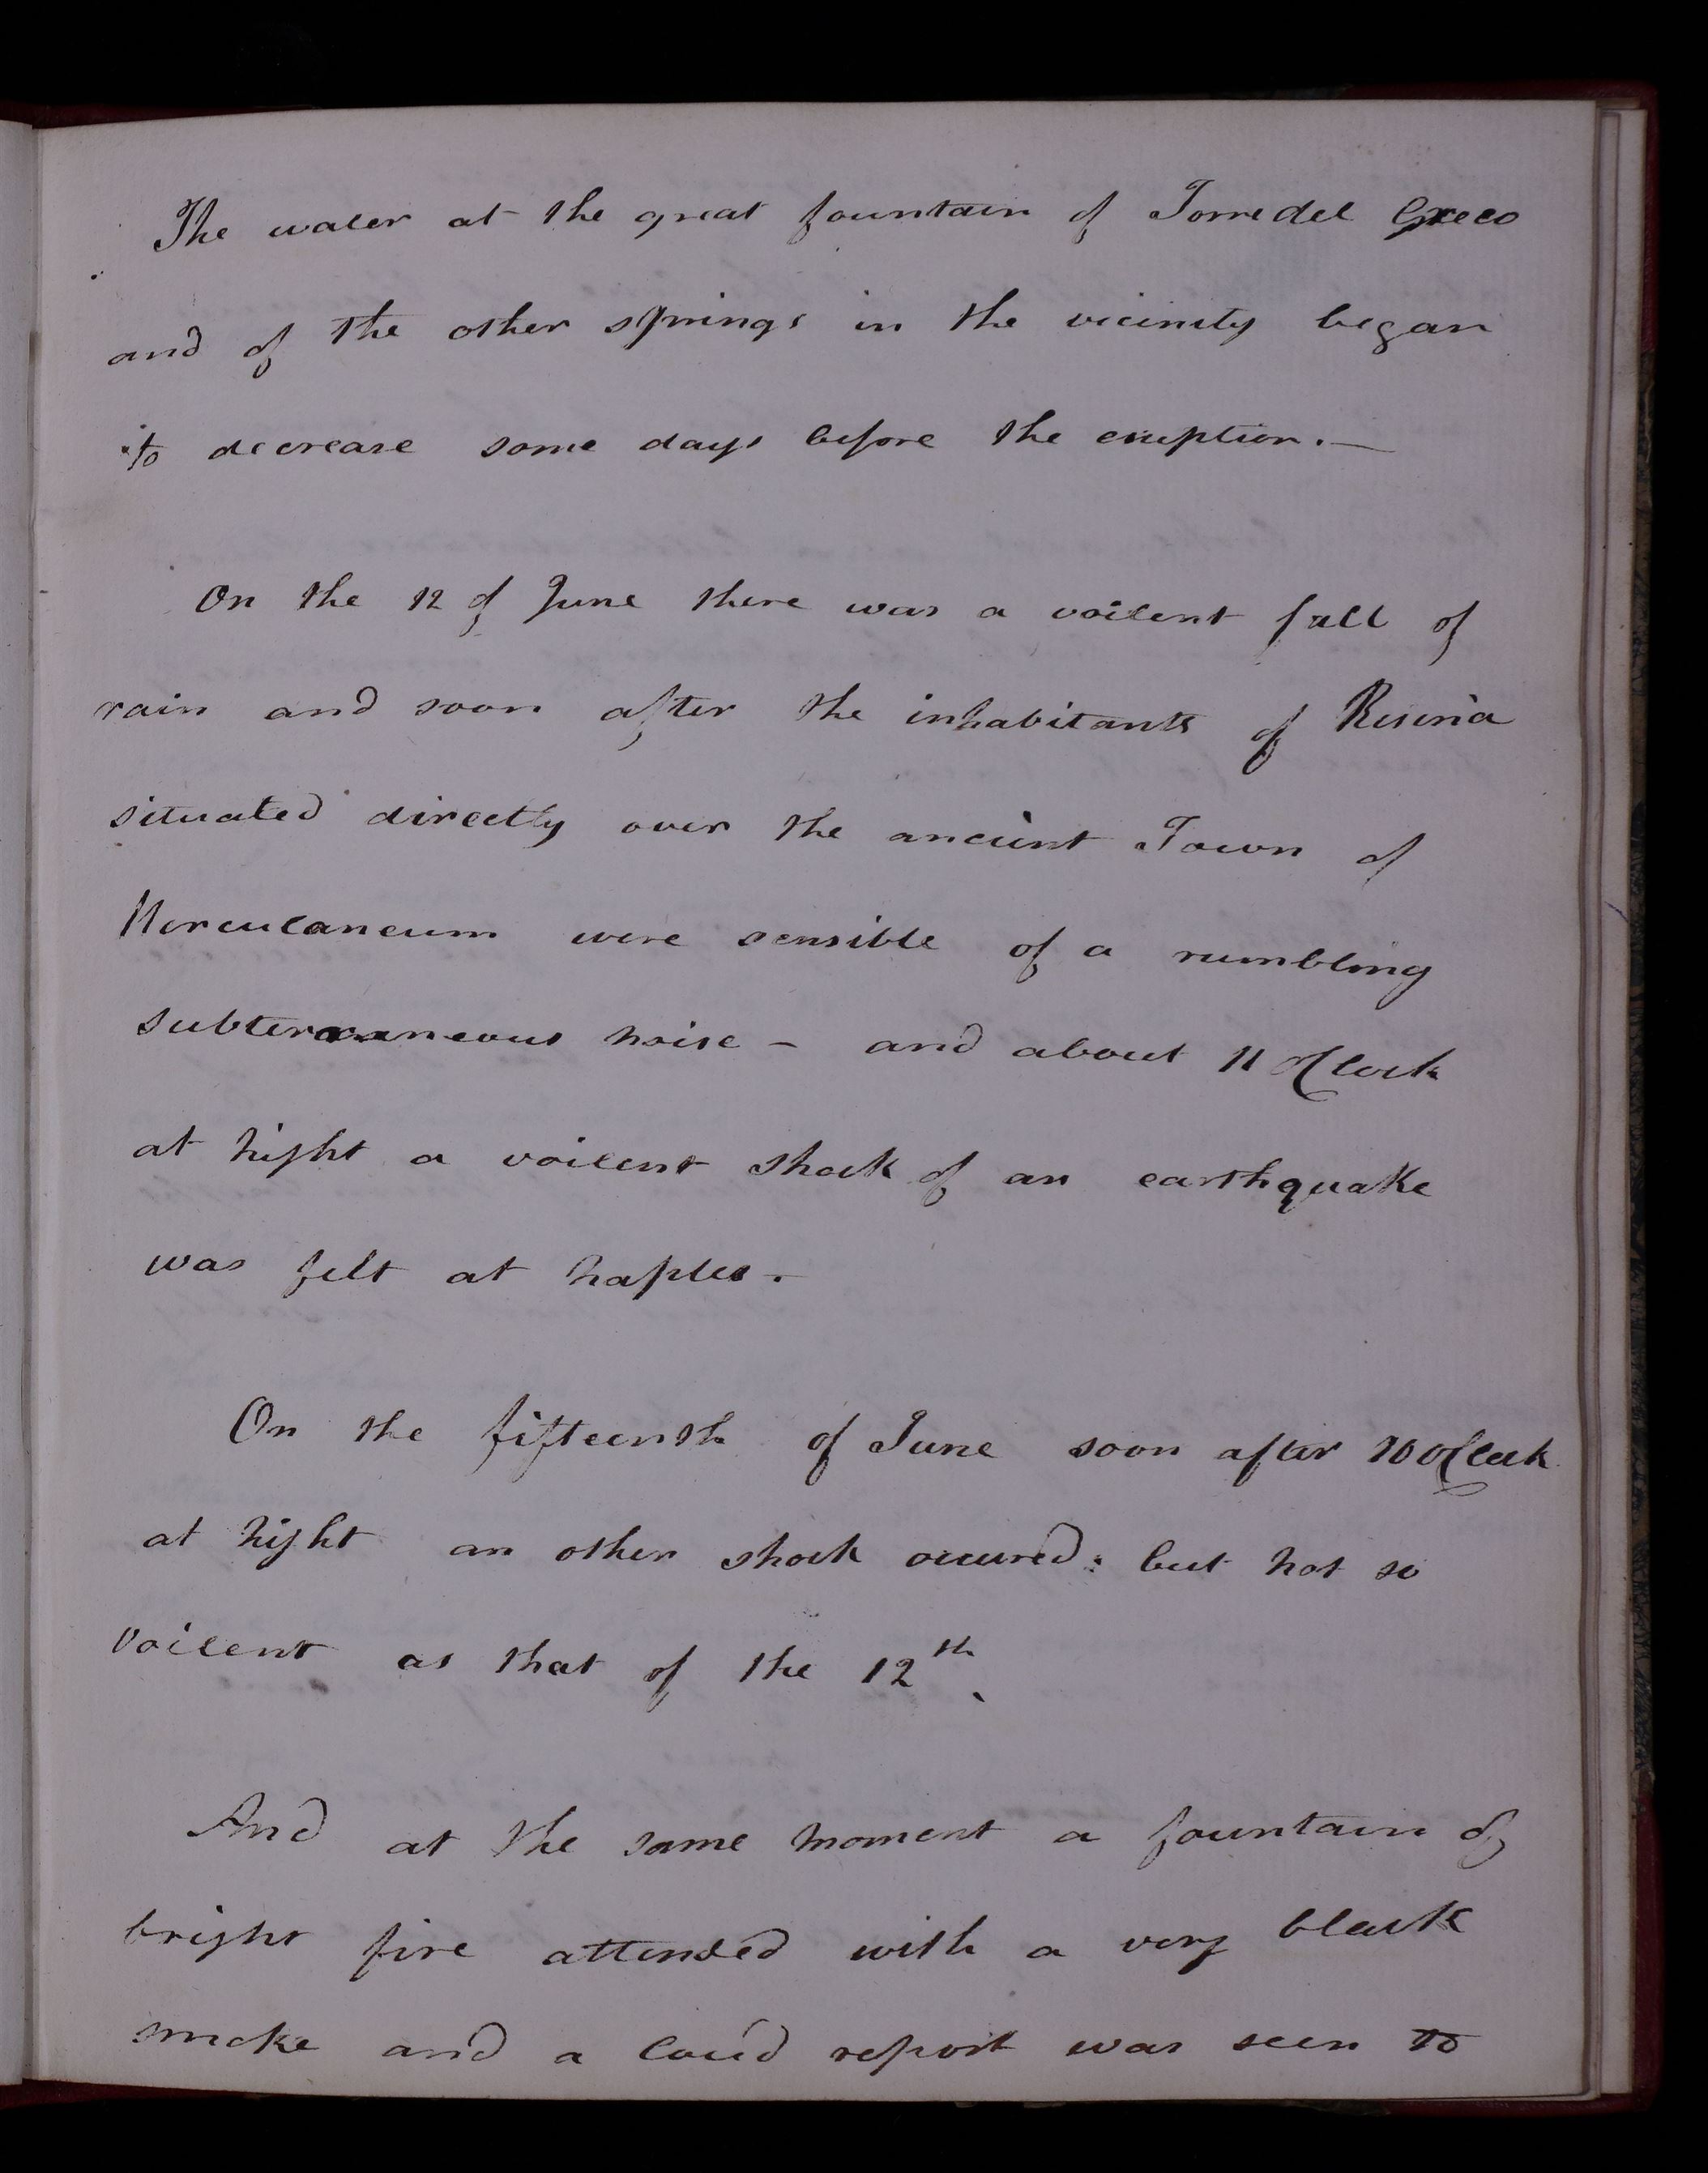 The water at the great fountain of Torre del Greco
and of the other springs in the vicinity began
to decrease some days before the eruption. —
On the 12 of June there was a voilent fall of
rain and soon after the inhabitants of Resina
situated directly over the ancient Town of
Herculaneum were sensible of a rumbling
subterraneous noise – and about 11 oClock
at night a voilent shock of an earthquake
was felt at naples. –
On the fifteenth of June soon after 10 oClock
at night an other shock occured: but not so
voilent as that of the 12th.
And at the same moment a fountain of
bright fire attended with a very black
smoke and a loud report was seen to